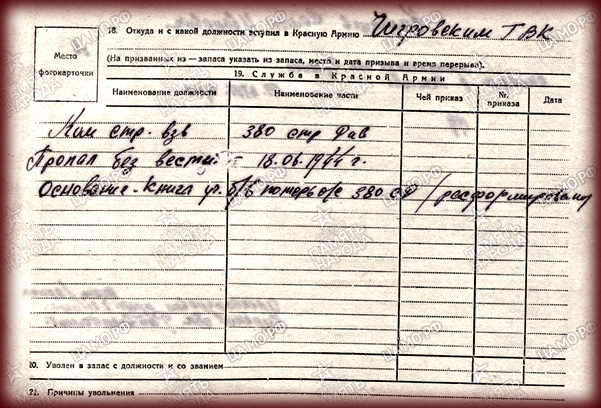 18. Откуда и с какой должности вступил в Красную Армию Чигровским ГВК
Место фотокарточки
(На призванных из — запаса указать из запаса, место и дата призыва и время перерыва).
19. Служба в Красной Армии
Наименование должности Наименование части Чей приказ № приказа Дата
Ком стр. взв 380 стр див
Пропал без вести 18.06.1944 г.
Основание - Книга б/в потерь о/с 380 сд /расформирована
20. Уволен в запас с должности и со званием
21. Причины увольнения